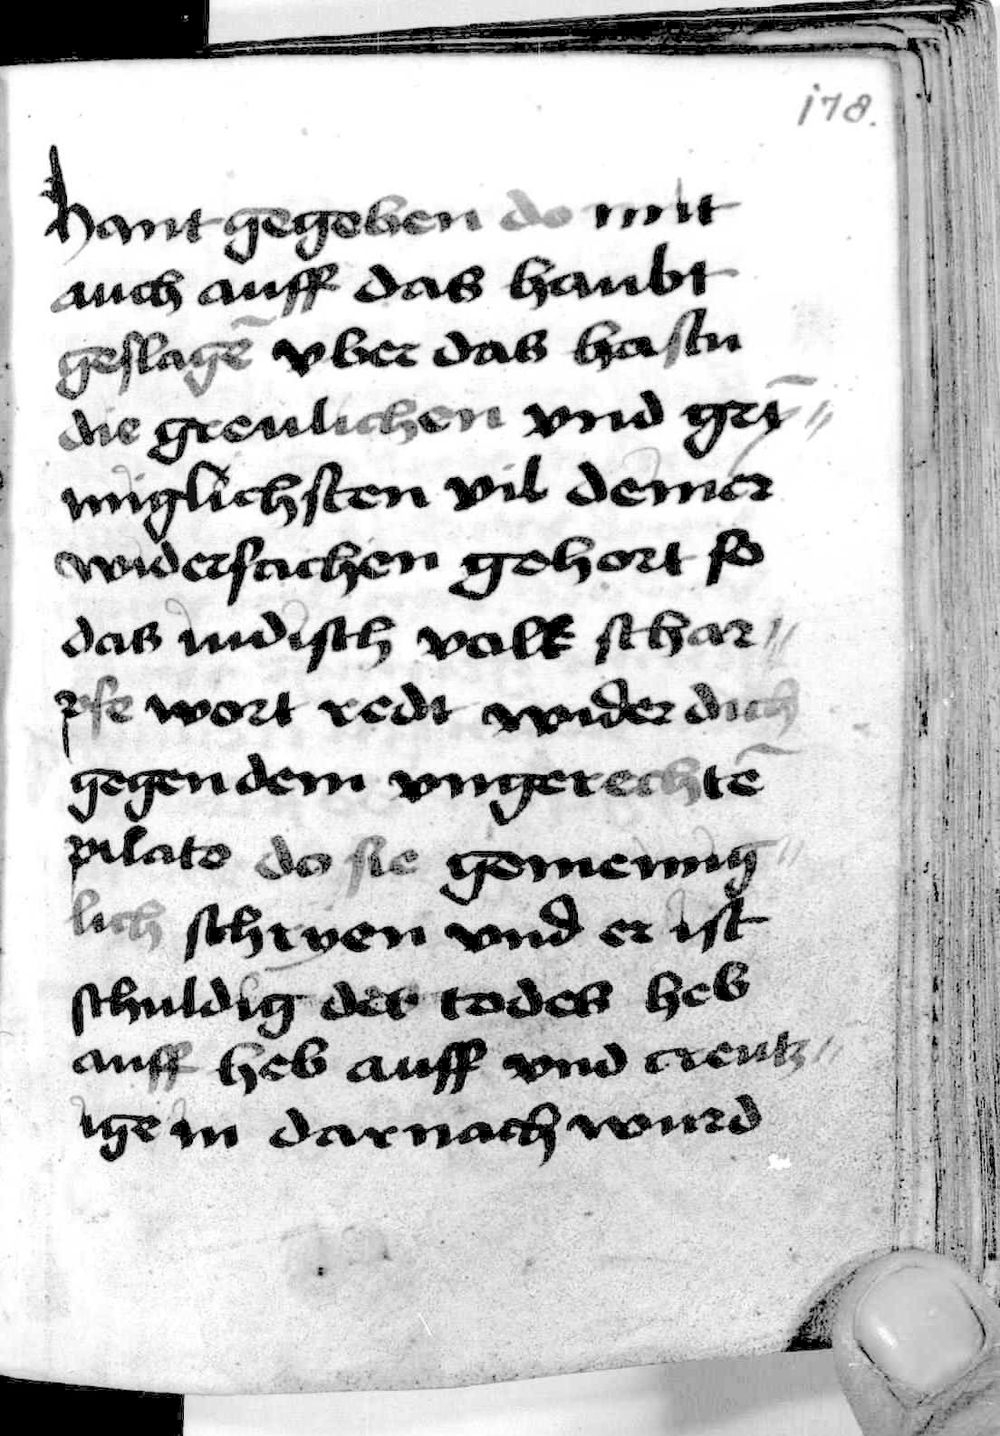 178.
hant gegeben do mit
auch auff das haubt
geslagē vber das hastu
die greulichen vnd grȳ//
miglichsten vil deiner
widersachen gehort so
das iudisch volk schar//
pfe wort redt wider dich
gegen dem vngerechtē
pilato do sie gemeinig//
lich schryen vnd er ist
schuldig des todes heb
auff heb auff vnd creutz//
ige in darnach wurd